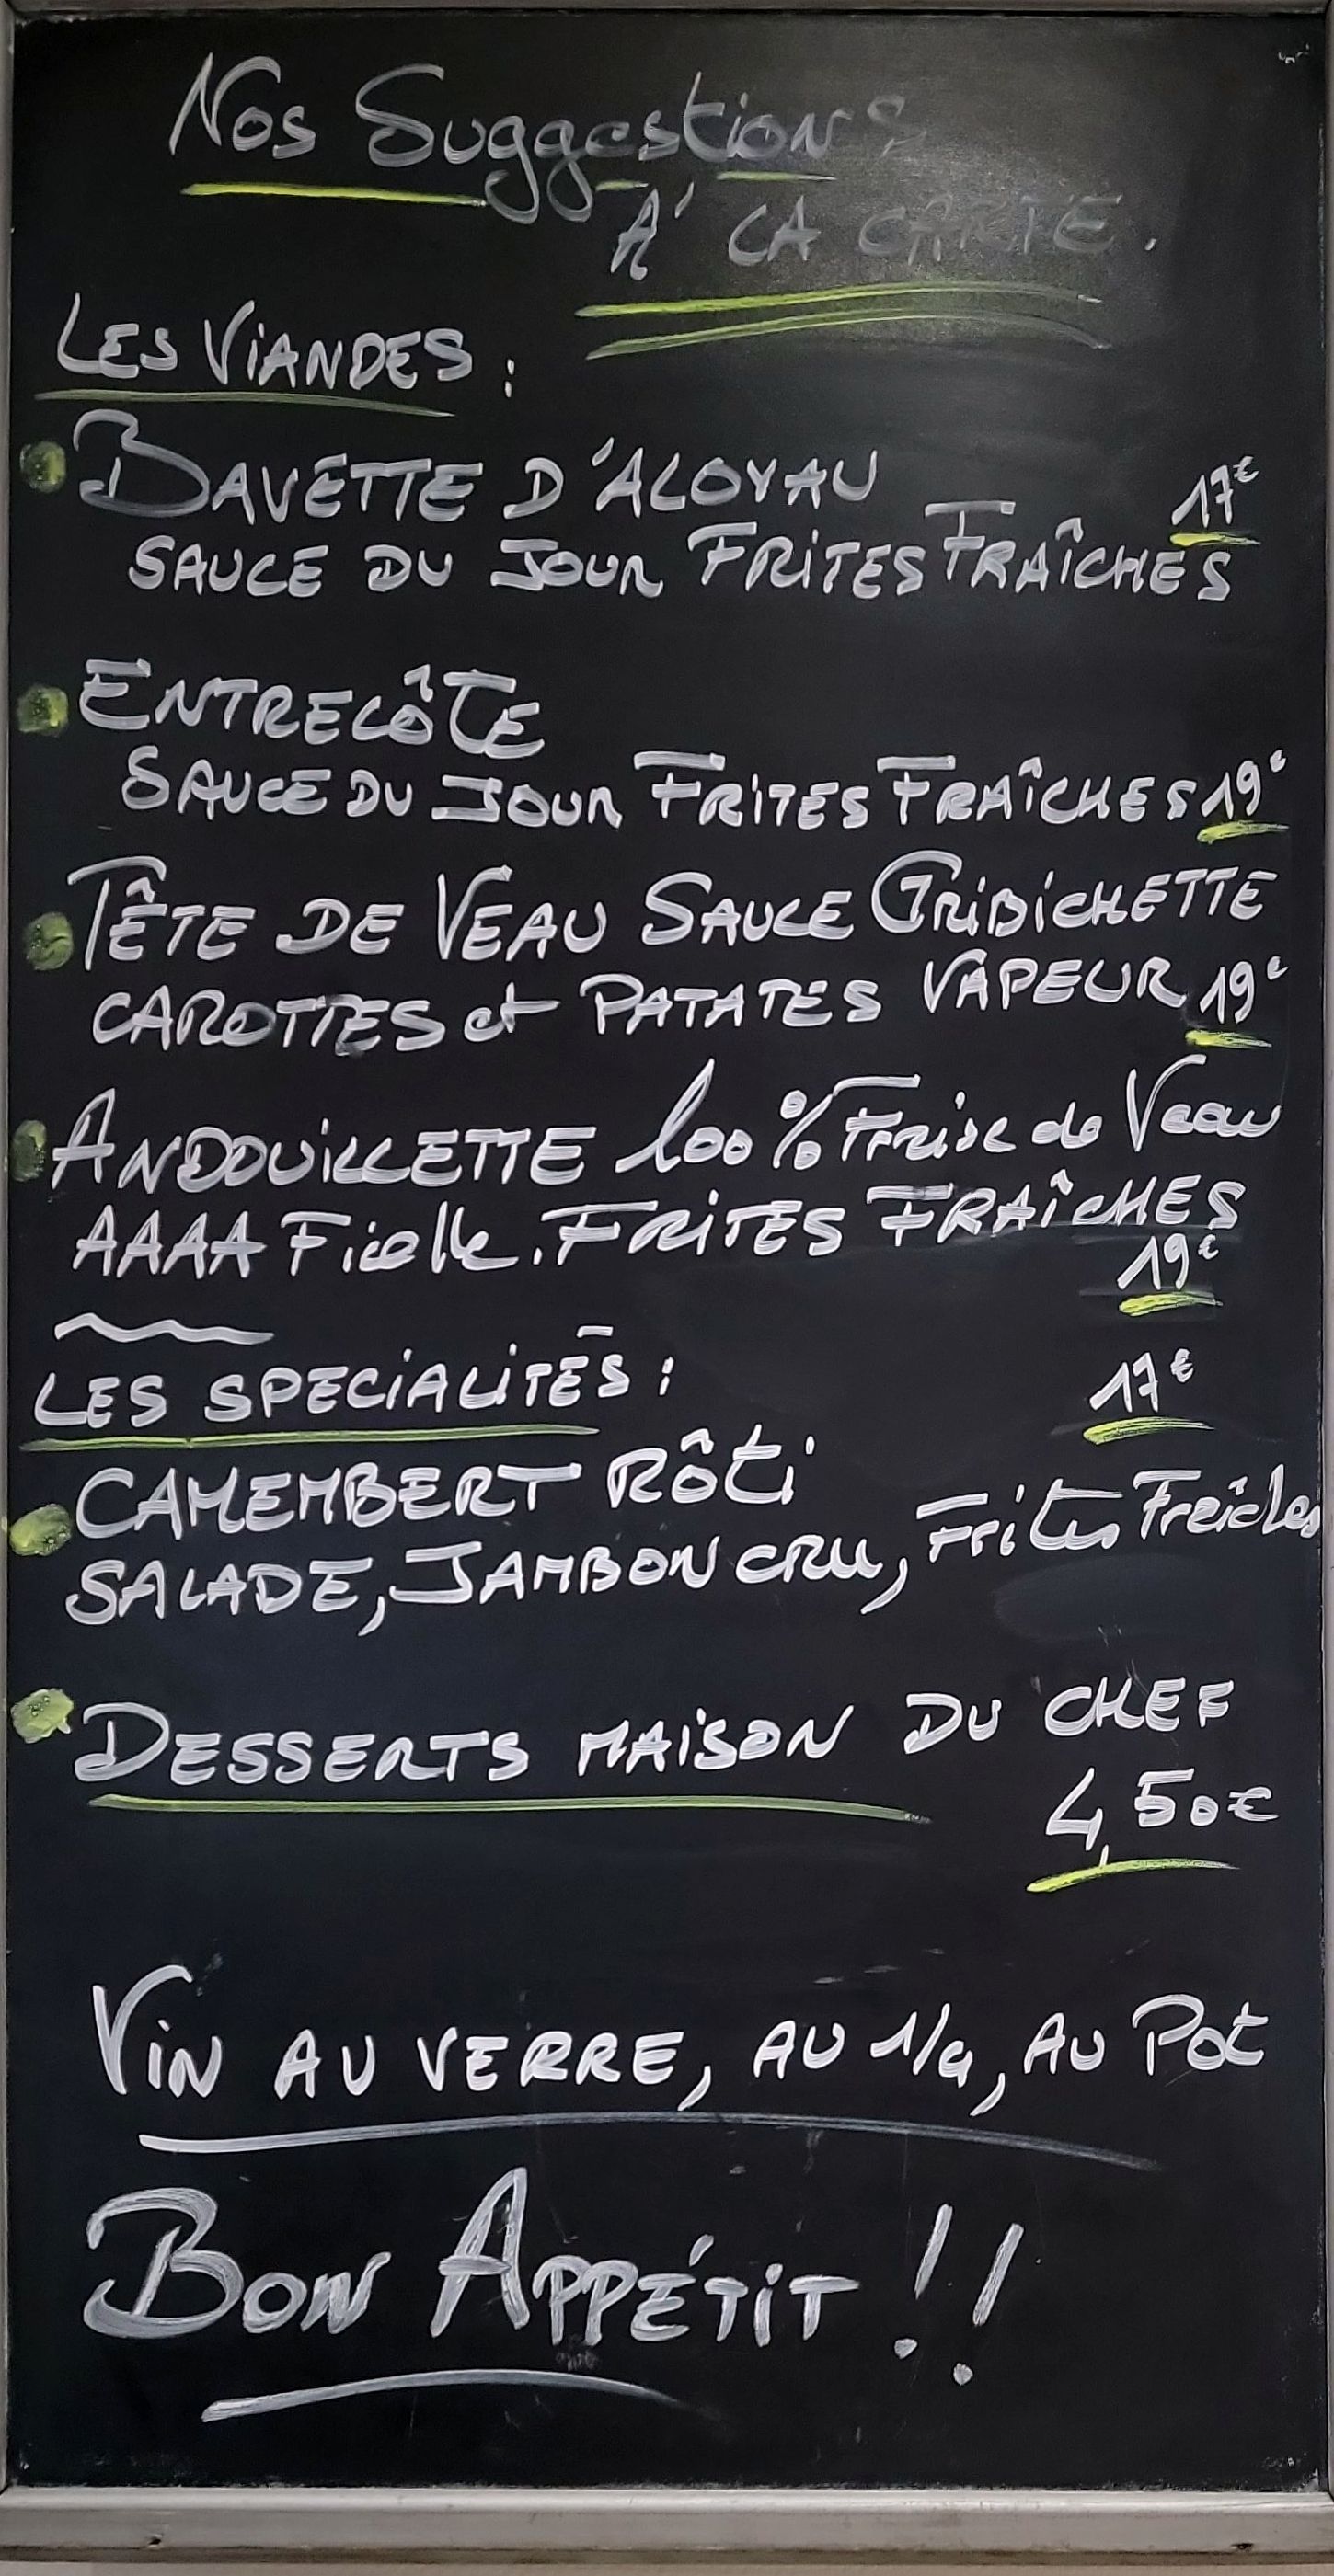 Nos Suggestions
A' LA CARTE.
LES ViANDES :
BAVETTE D'ALOYAU 17€
SAUCE DU JOUR FRiTES FRAÎCHES
ENTRECÔTE
SAUCE DU JOUR FRiTES FRAÎCHES 19€
TÊTE DE VEAU SAUCE GRiBiCHETTE
CAROTTES et PATATES VAPEUR 19€
ANDOUiLLETTE 100% Fraise de Veau
AAAA Ficelle. FRiTES FRAÎCHES
19€
LES SPECiALiTÉS : 17€
CAMEMBERT RÔti
SALADE, JAMBON CRU, Frites Fraîches
DESSERTS MAiSON DU CHEF
4,50€
ViN AU VERRE, AU 1/4, AU Pot
BON APPÉTiT !!